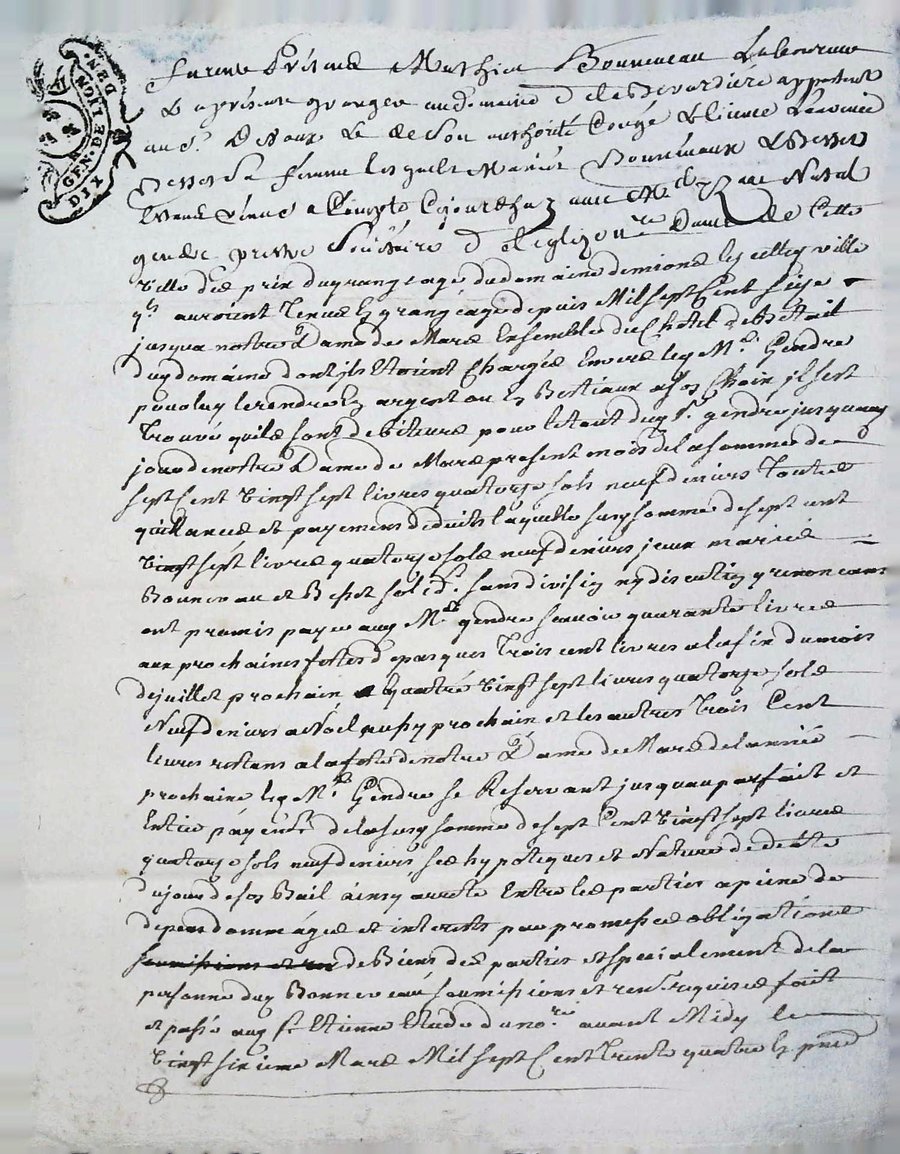 GEN. DE
DIX
DEN.
furent présans Mathieu Bonneveau Laboureur
Et a présent granger au domaine de appartenant
au sr. Et de son authorité Congé & licence
sa femme lesquels Mariés Bonneveaux &
Estans venus a Compte Cejourdhuy avec Me. Natal
gendre prestre Sociétaire de leglize nre Dame de Cette
Ville des prix du grangeage du domaine de les cette ville
qls auroient tenues En grangéage depuis Mil sept Cent seize
jusqua nostre Dame de Mars Ensemble du Chetel & bestail
dud domaine dont ils Etoient Chargés Envers led Mre. Gendre
pour luy le rendre En argent ou En Bestiaux a son Choix il sest
trouvé quils sont debiteurs pour le tout dud sr. gendre jusquau
jour de nostre Dame de Mars present mois de la somme de
sept Cent vingt sept livres quatorze sols neuf deniers toutes
quittances et payemens déduits laquelle susd somme de sept cent
vingt sept livres quatorze sols neuf deniers iceux mariés
Bonneveau et solidt. sans division ny discution y renonceant
ont promis payer aud Mre. gendre scavoir quarante livres
aux prochaines festes de pasques trois cent livres a la fin du mois
de juillet prochain quatre vingt sept livres quatorze sols
Neuf deniers a Noel aussy prochain et les autres trois Cent
livres restans a la feste de nostre Dame de Mars de lannée
prochaine led Mre. Gendre se Reservant jusquau parfait et
Entier payemt. de la susd somme de sept Cent vingt sept livres
quatorze sols neuf deniers ses hypoteques et Nature de dette
du jour de son Bail ainsy arreté Entre les parties a peine de
depens dommages et interests par promesses obligations
soumissions et ren de Biens des parties et specialement de la
personne dud Bonneveau soumissions et renon. requises fait
et passé aud St. Etienne Etude du nore. avant Midy le
vingt sixieme Mars Mil sept Cent trente quatre En prnce